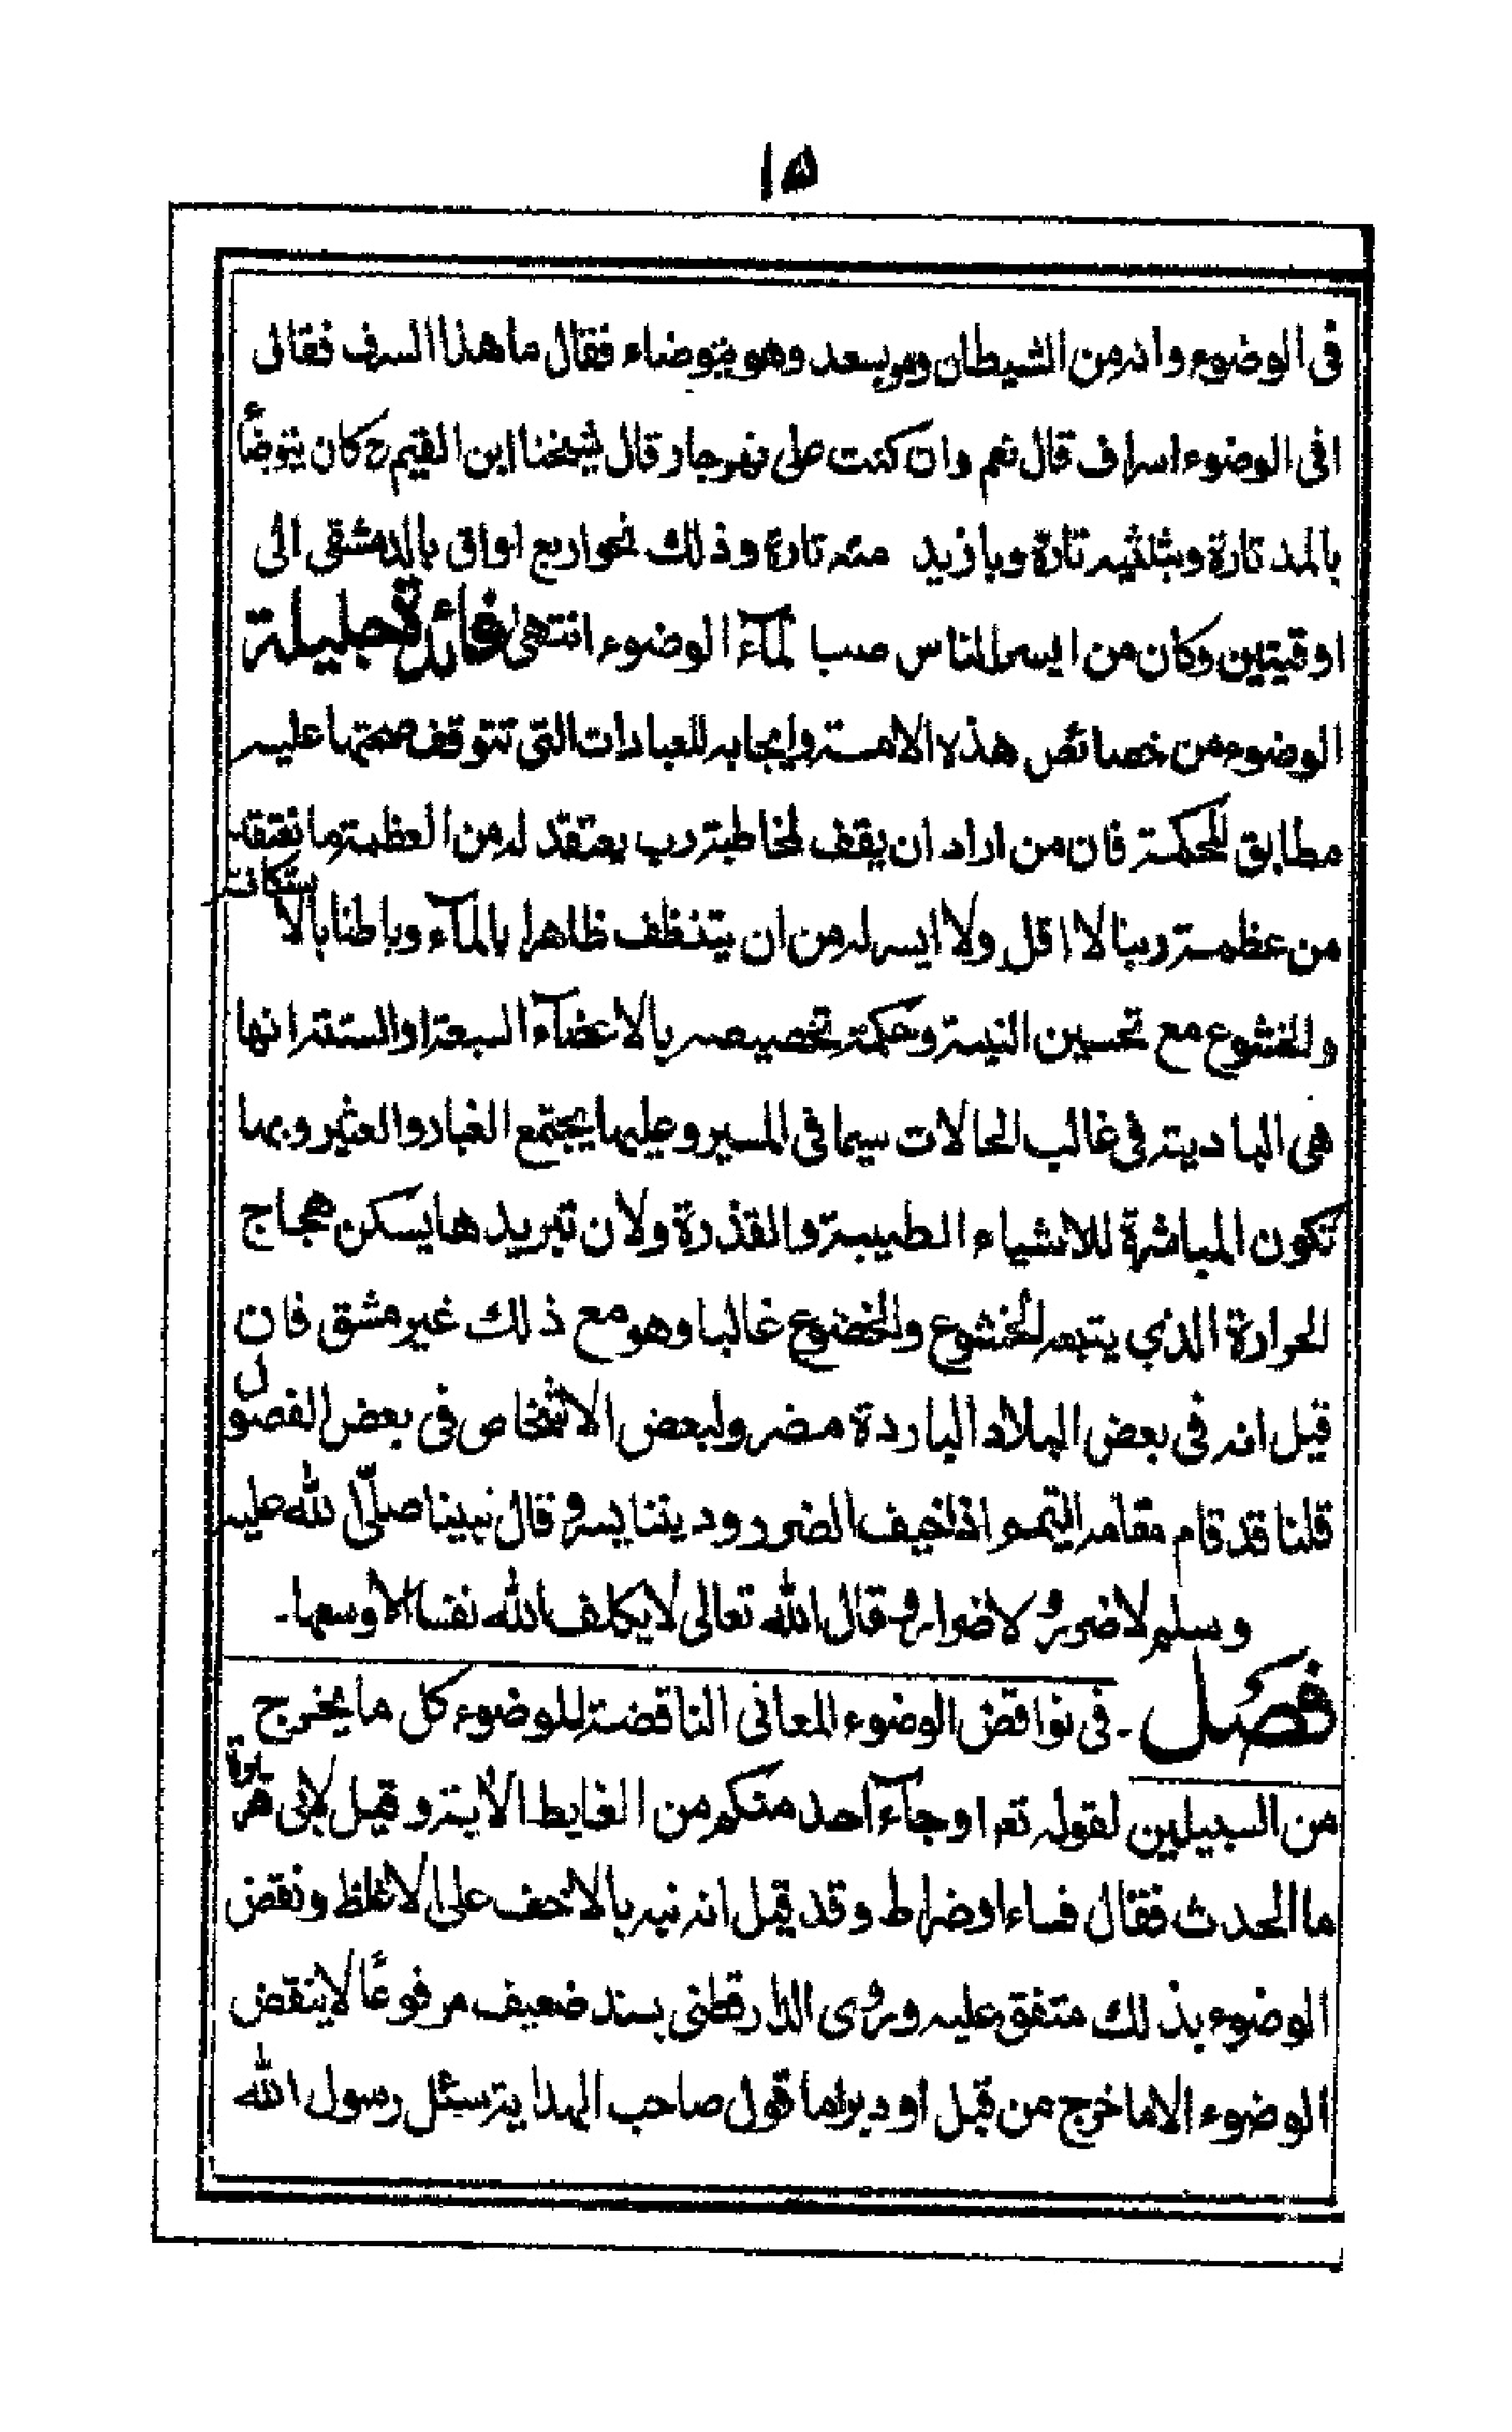 ١٥
فى الوضوء وانه من الشيطان ومر بسعد وهو يتوضاء فقال ما هذا السرف فقال
افى الوضوء اسراف قال نعم وان كنت على نهر جار قال شيخنا ابن القيم رح كان يتوضأ
بالمد تارة وبثلثيه تارة وبازيد منه تارة وذلك نحو اربع اواق بالدمشقى الى
اوقيتين وكان من ايسر الناس صبا لمآء الوضوء انتهىٰ فائدة جليلة
الوضوء من خصائص هذه الامة وايجابه للعبادات التى تتوقف صحتها عليه
مطابق للحكمة فان من اراد ان يقف لمخاطبة رب يعتقد له من العظمة ما نعتقد
من عظمة ربنا لا اقل ولا ايسر له من ان يتنظف ظاهرا بالمآء وباطنا بالاستكانة
والخشوع مع تحسين النية وحكمة تخصيصه بالاعضآء السبعة او الستة انها
هى البادية فى غالب الحالات سيما فى المسير وعليها يجتمع الغبار والعثير وبها
تكون المباشرة للاشياء الطيبة والقذرة ولان تبريدها يسكن هجاج
الحرارة الذي يتبعه الخشوع والخضوع غالبا وهو مع ذلك غير مشق فان
قيل انه فى بعض البلاد الباردة مضر ولبعض الاشخاص فى بعض الفصول
قلنا قد قام مقامه التيمم اذا خيف الضرر وديننا يسر وقال نبينا صلّى الله عليه
وسلم لا ضرر ولا ضرار وقال الله تعالى لا يكلف الله نفسا الا وسعها۔
فصل ۔ فى نواقض الوضوء المعانى الناقضة للوضوء كل ما يخرج
من السبيلين لقوله تعـ او جآء احد منكم من الغايط الآية وقيل لابى هريرة
ما الحدث فقال فساء او ضراط وقد قيل انه نبه بالاخف على الاغلظ ونقض
الوضوء بذلك متفق عليه وروى الدارقطنى بسند ضعيف مرفوعًا لا ينقض
الوضوء الا ما خرج من قبل او دبر اما قول صاحب الهداية سئل رسول الله